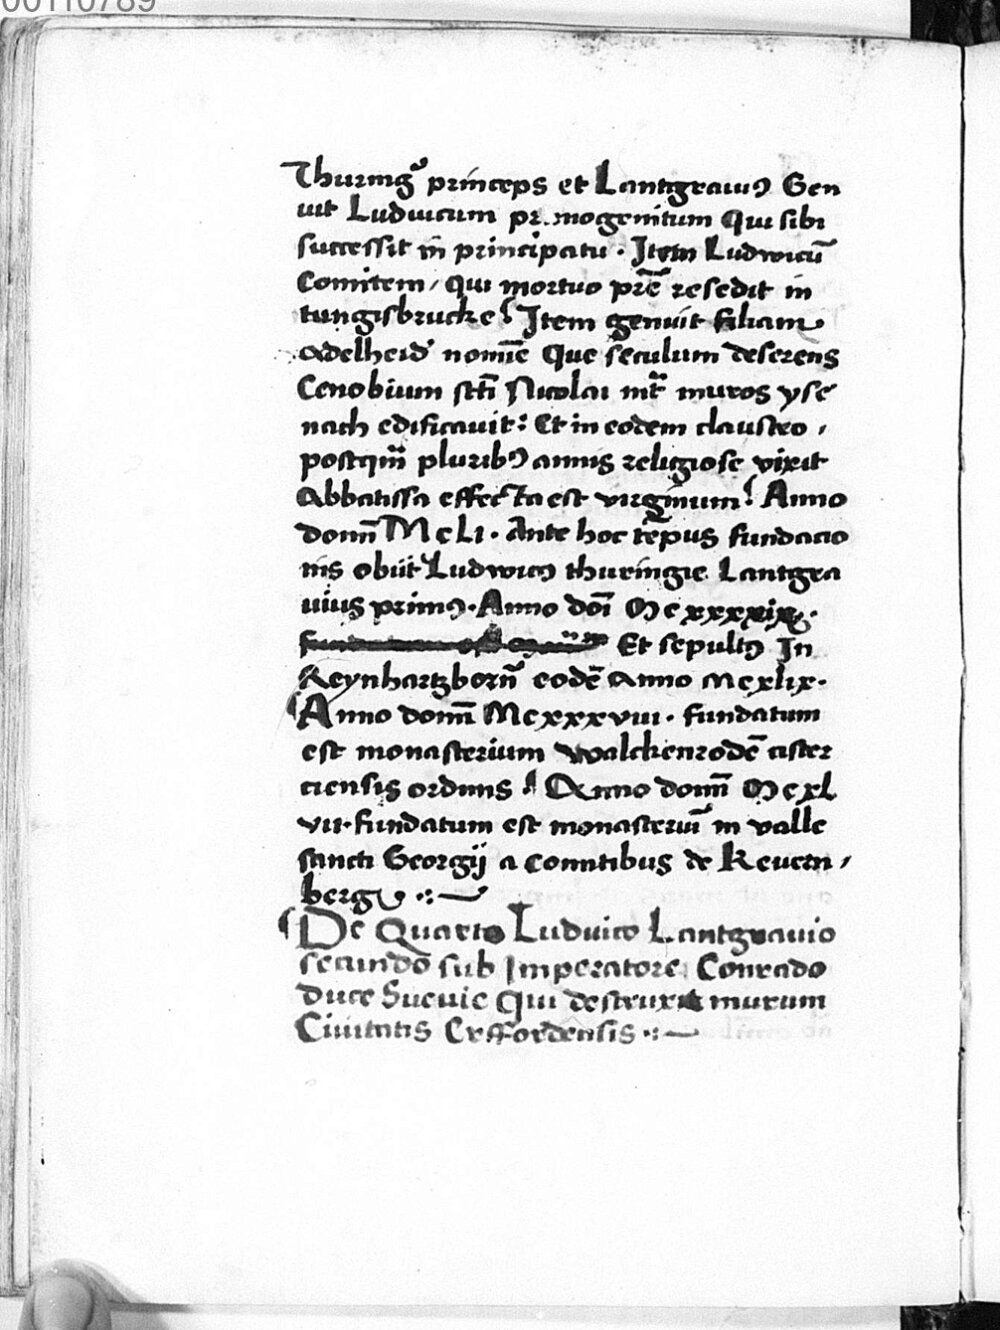 00110789
Thuringꝰ princeps et Lantgrauiꝰ Gen
uit Ludwicum pr.mogenitum Qui sibi
successit in principatu · Item Ludwicū
Comitem / Qui mortuo pr̄e resedit in
tungisbrucke Item genuit filiam
adelheid nomīe Que seculum deserens
Cenobium sc̄ti Nicolai int̄ muros yse
nach edificauit : Et in eodem claustro /
postqm̄ pluribꝰ annis religiose vixit
Abbatissa effecta est virginum Anno
domī McLi · Ante hoc tēpus fundacio
nis obiit Ludwicꝰ thuringie Lantgra
uius primꝰ · Anno doī Mcxxxxix ·
Et sepultꝰ In
Reynhartzborn̄ eodē Anno mcxlix ·
Anno domī Mcxxxviii · fundatum
est monasterium walckenrodē cister
ciensis ordinis Anno domī Mcxl
vii · fundatum est monasteriū in valle
sancti Georgij a comitibus de Keuern /
berg
De Quarto Luduico Lantgrauio
secundo sub Imperatore Conrado
duce Sueuie Qui destruxit murum
Ciuitatis Erffordensis